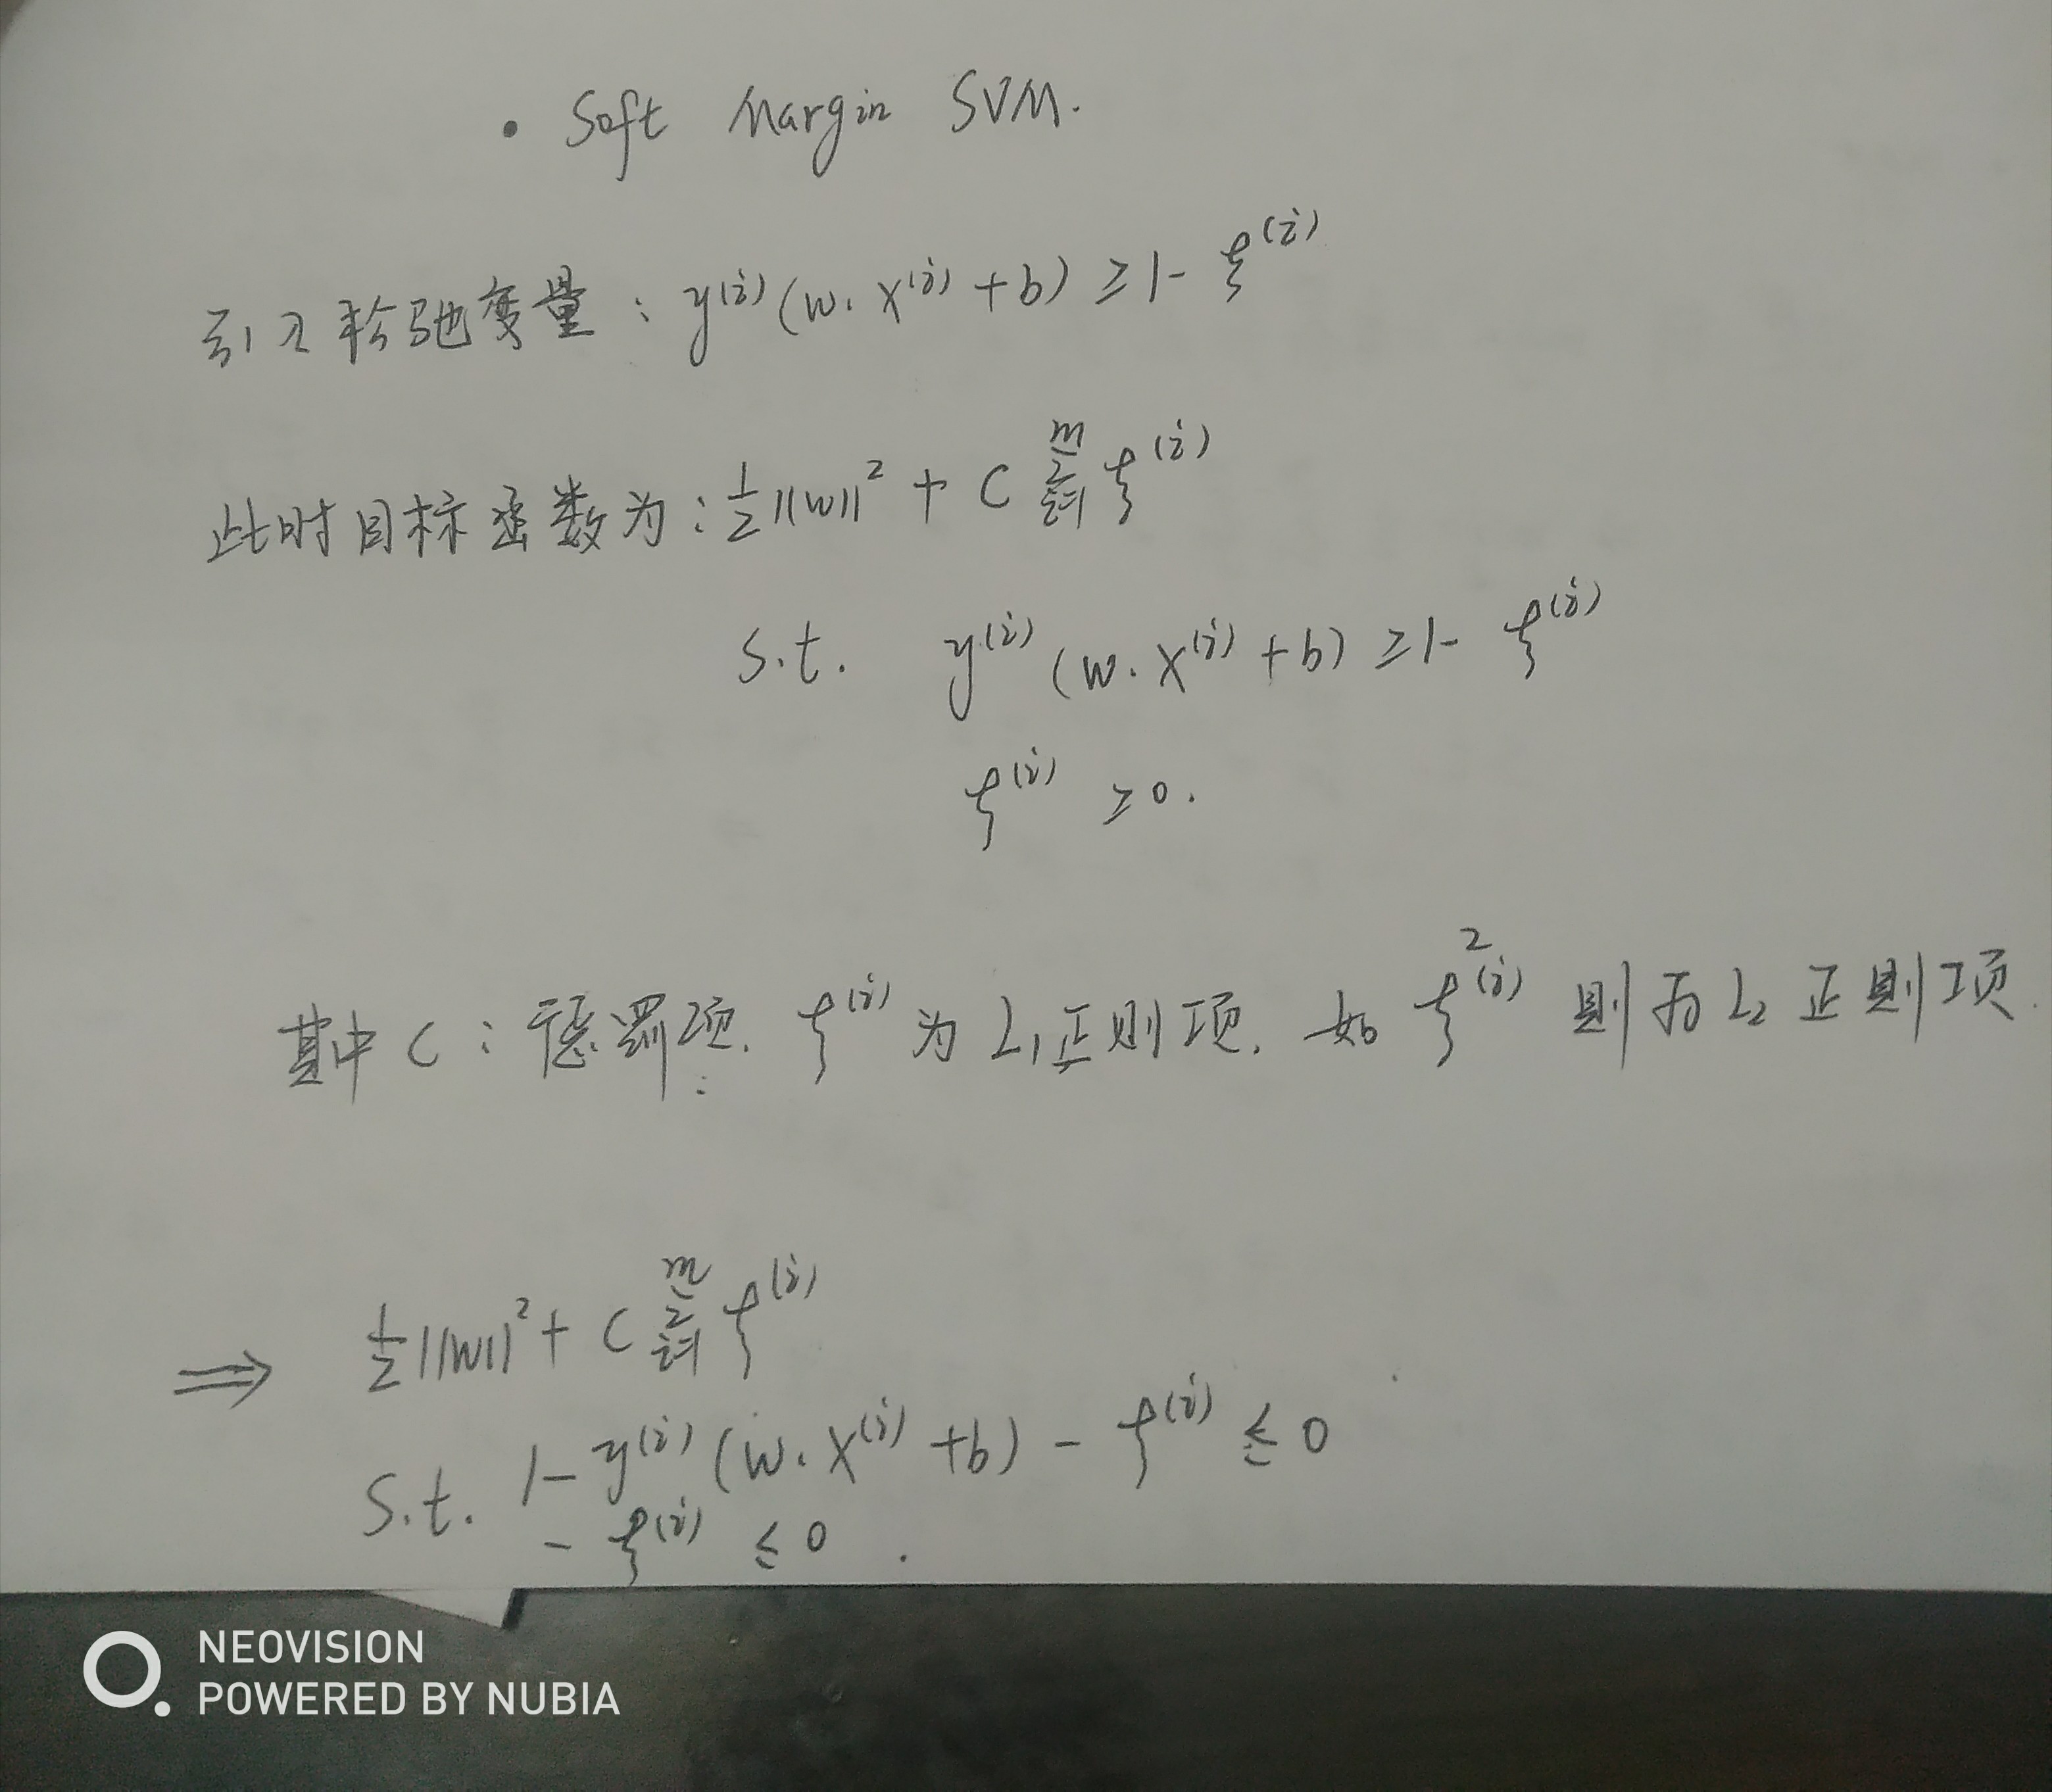 • Soft Margin SVM.
引入松驰变量：y⁽ⁱ⁾(w·x⁽ⁱ⁾+b) ≥ 1- ξ⁽ⁱ⁾
此时目标函数为：½||w||² + C Σᵢ₌₁ᵐ ξ⁽ⁱ⁾
s.t. y⁽ⁱ⁾(w·x⁽ⁱ⁾+b) ≥ 1- ξ⁽ⁱ⁾
ξ⁽ⁱ⁾ ≥ 0.
其中 C：惩罚项. ξ⁽ⁱ⁾ 为 L₁正则项. 如 ξ²⁽ⁱ⁾ 则为 L₂ 正则项.
⇒ ½||w||² + C Σᵢ₌₁ᵐ ξ⁽ⁱ⁾
s.t. 1- y⁽ⁱ⁾(w·x⁽ⁱ⁾+b) - ξ⁽ⁱ⁾ ≤ 0
- ξ⁽ⁱ⁾ ≤ 0.
NEOVISION
POWERED BY NUBIA